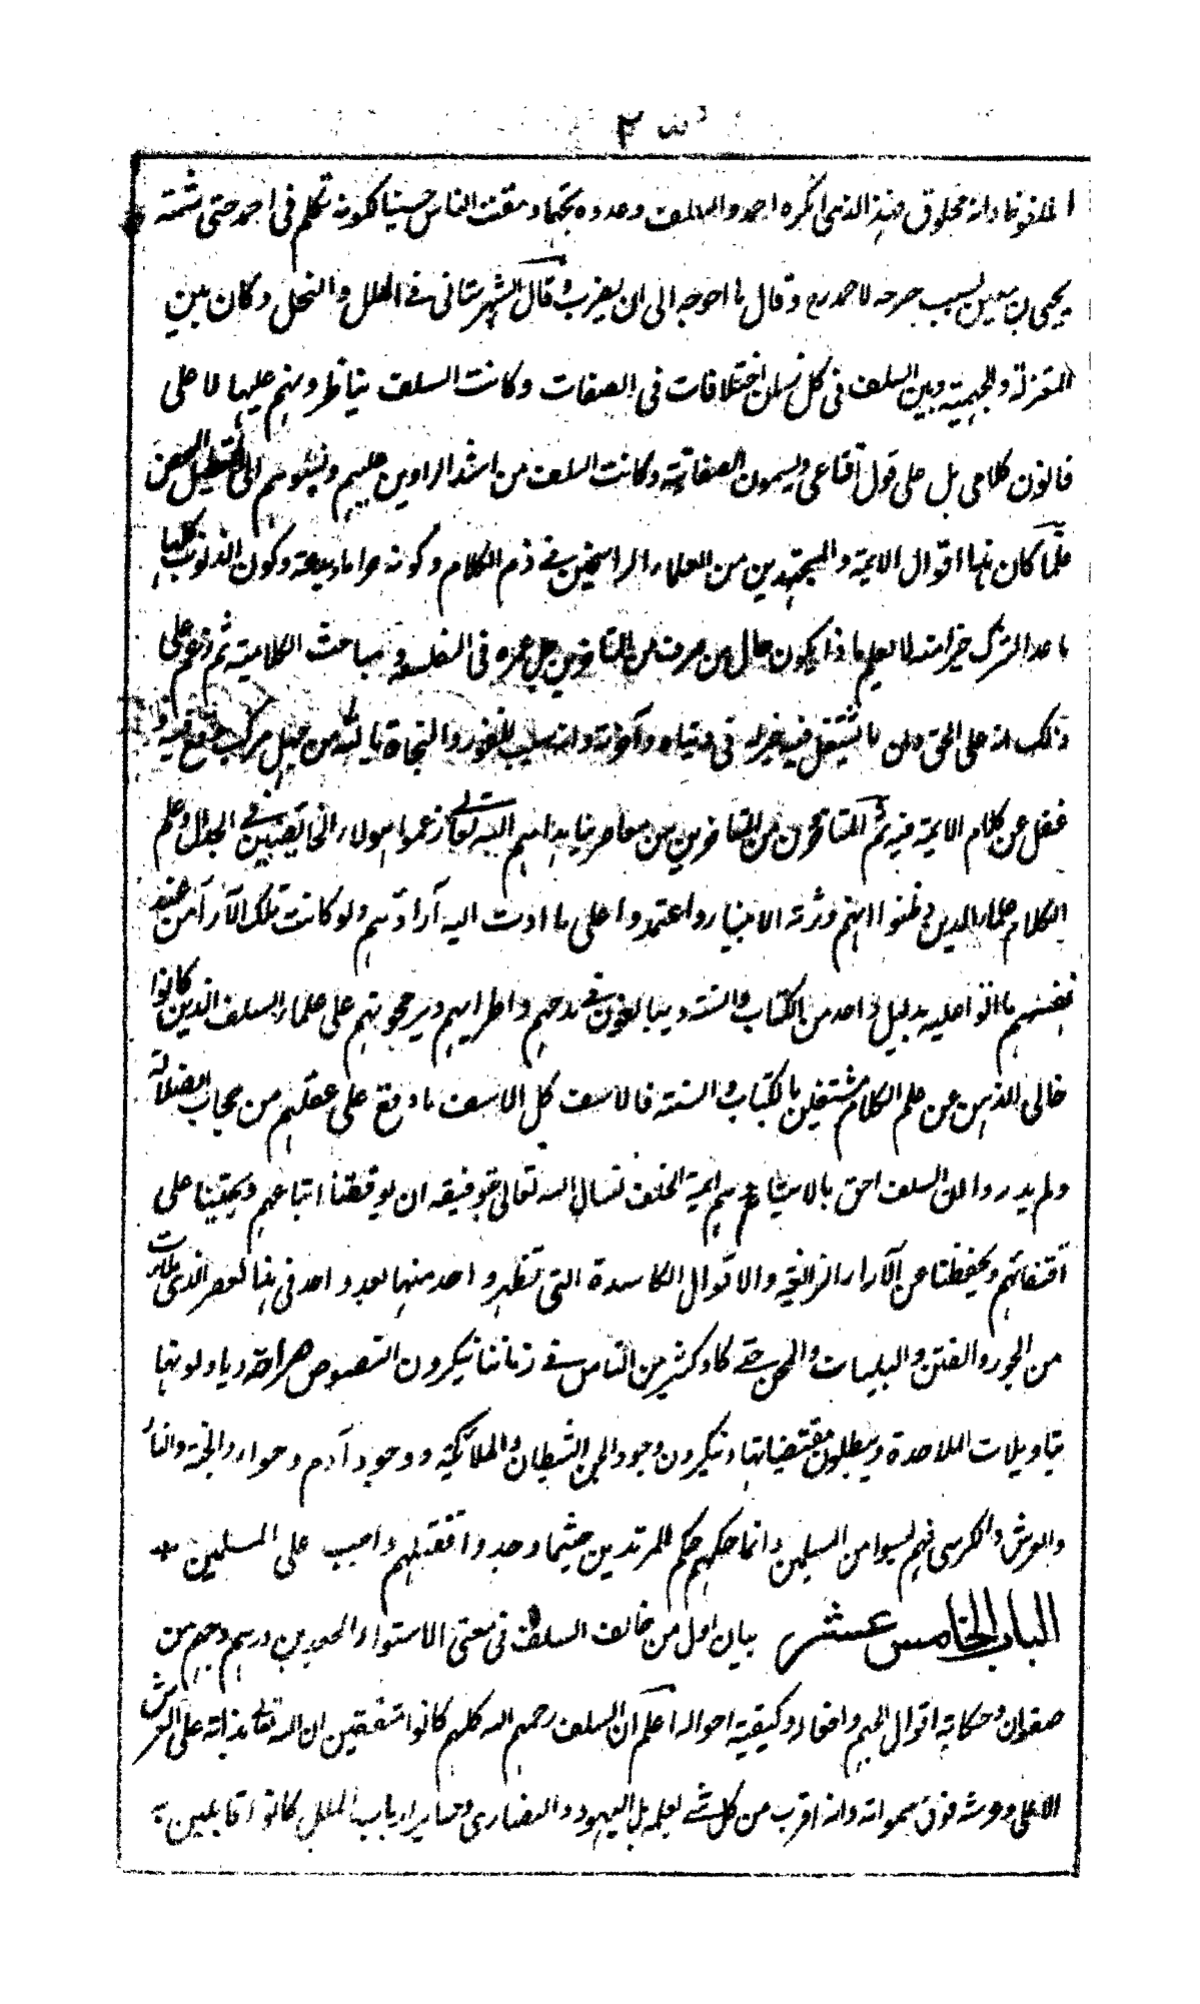 الملفوظ وانه مخلوق فهذا الذى انكره احمد والسلف وعدوه تجهما ومقت الناس حسينا لكونه تكلم فى احمد حتى شتمه
يحيى بن معين بسبب جرحه لاحمد وقال ما احوجه الى ان يضرب وقال الشهرستانى فى الملل والنحل وكان بين
المعتزلة والجهمية وبين السلف فى كل زمان اختلافات فى الصفات وكانت السلف يناظرونهم عليها لا على
قانون كلامى بل على قول اقناعى ويسمون الصفاتية وكانت السلف من اشد الرادين عليهم
فلما كان هذا اقوال الايمة والمجتهدين من العلماء الراسخين فى ذم الكلام وكونه حراما وبدعة وكون الذنوب كلها
ما عدا الشرك خيرا منه لا نعلم ماذا يكون حال من صرف من المتاخرين جل عمره فى الفلسفة ومباحث الكلامية ثم زعم على
ذلك انه على الحق وان ما يشتغل فيه خير له فى دنياه وآخرته وانه سبب للفوز والنجاة يا لله من جهل مركب وقع فيه
غفل عن كلام الايمة فيه ثم المتاخرون من المتاخرين من معاصرينا هداهم الله تعالى زعموا هولاء الخايضين فى الجدال وعلم
الكلام علماء الدين وظنوا انهم ورثة الانبياء واعتمدوا على ما ادت اليه آراؤهم ولو كانت تلك الآراء من عند
انفسهم ما اتوا عليه بدليل واحد من الكتاب والسنة ويبالغون فى مدحهم واطرائهم ويرجحونهم على علماء السلف الذين كانوا
خالى الذهن عن علم الكلام مشتغلين بالكتاب والسنة فالاسف كل الاسف ما وقع على عقلهم من حجاب الضلالة
ولم يدروا ان السلف احق بالاتباع ام هم ايمة الخلف نسال الله تعالى بتوفيقه ان يوفقنا اتباعهم ويحيينا على
اقتفائهم ويحفظنا عن الآراء الزائغة والاقوال الكاسدة التى تظهر واحد منها بعد واحد فى هذا العصر الذى ملئت
من الجور والفتن والبليات والمحن حتى كاد كثير من الناس فى زماننا ينكرون النصوص صراحة وياولونها
بتاويلات الملاحدة ويبطلون مقتضياتها وينكرون وجود الجن والشيطان والملائكة ووجود آدم وحواء والجنة والنار
والعرش والكرسى فهم ليسوا من المسلمين وانما حكمهم حكم المرتدين حيثما وجدوا فقتلهم واجب على المسلمين +
الباب الخامس عشر بيان اول من خالف السلف فى معنى الاستواء والجعد بن درهم وجهم بن
صفوان وحكاية اقوال الجهم وافعاله وكيفية احواله اعلم ان السلف رحمهم الله كلهم كانوا متفقين ان الله تعالى بذاته على العرش
الاعلى وعرشه فوق سمواته وانه اقرب من كل شئ بعلمه بل اليهود والنصارى وساير ارباب الملل كانوا قايلين به